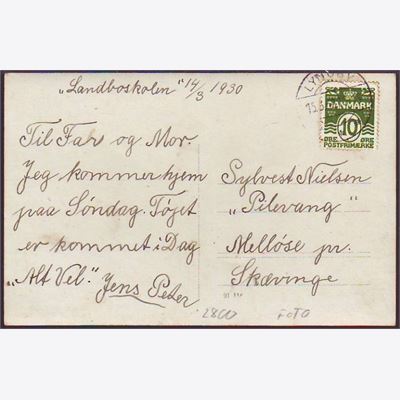 "Landboskolen" 14/3 1930
Til Far og Mor.
Jeg kommer hjem
paa Söndag. Töjet
er kommet i Dag
"Alt Vel." Jens Peter
LYNGBY
15.3
DANMARK
10
ØRE ØRE
POSTFRIMÆRKE
Sylvest Nielsen
"Pilevang"
Mellöse pr.
Skævinge
2800 FOTO